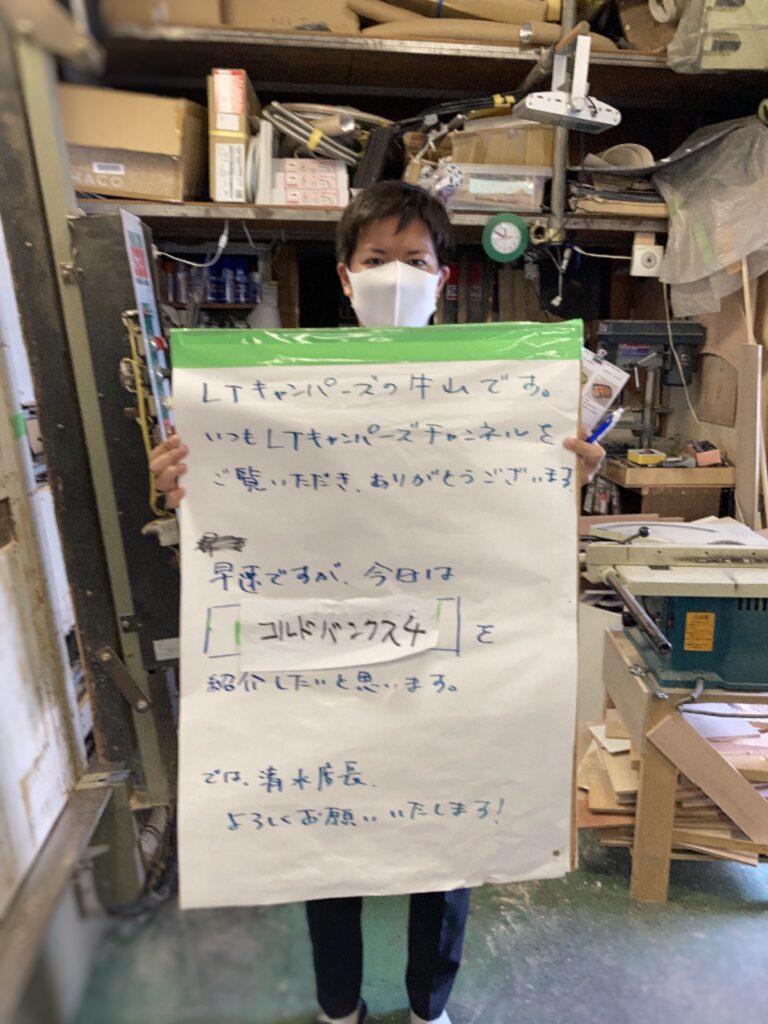 LTキャンパーズの牛山です。
いつもLTキャンパーズチャンネルを
ご覧いただき、ありがとうございます
早速ですが、今日は
コルドバンクス4 を
紹介したいと思います。
では、清水店長、
よろしくお願いいたします!
HACO